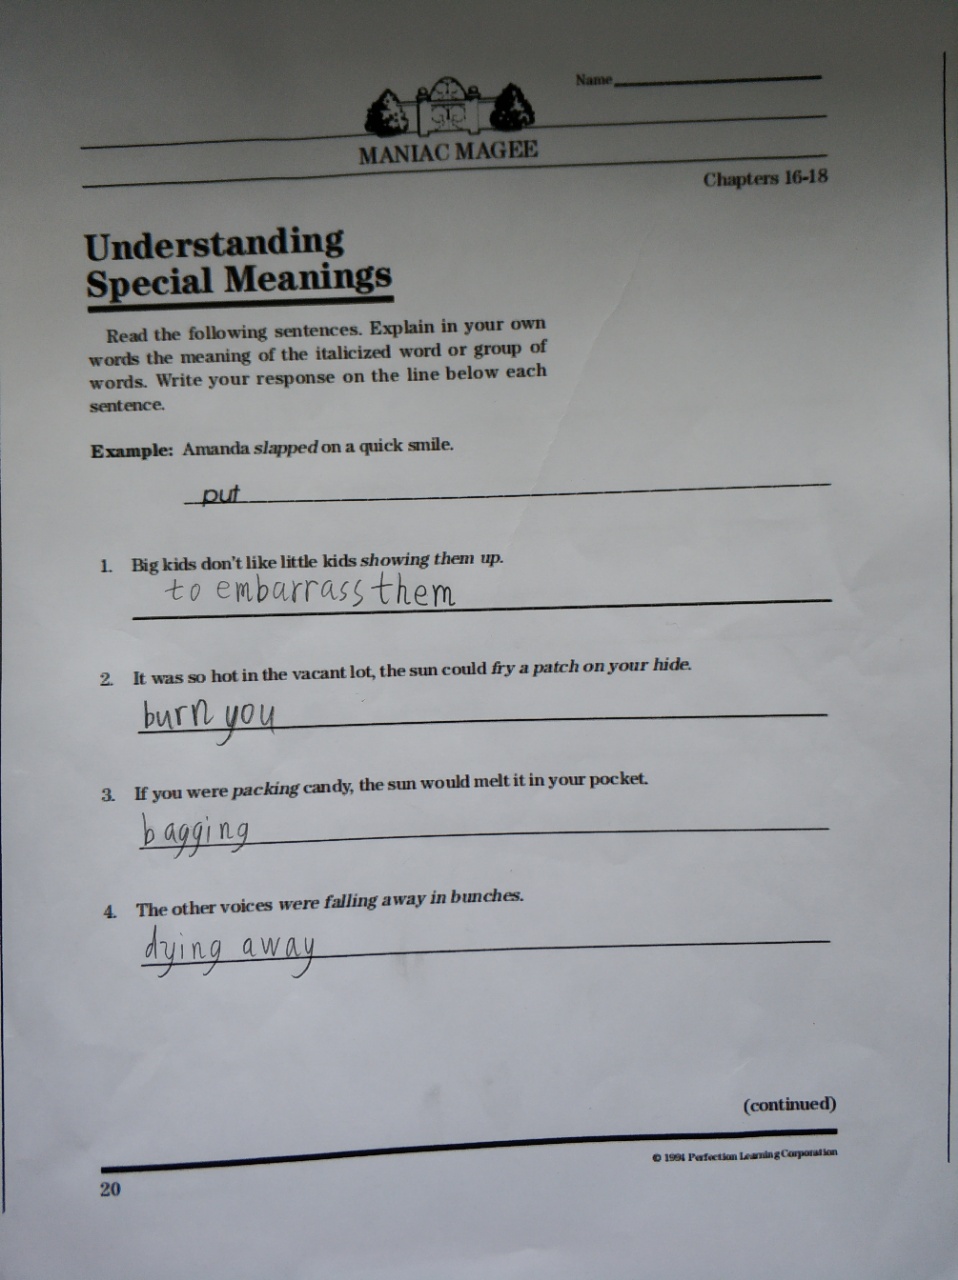 Name
MANIAC MAGEE
Chapters 16-18
Understanding
Special Meanings
Read the following sentences. Explain in your own
words the meaning of the italicized word or group of
words. Write your response on the line below each
sentence.
Example: Amanda slapped on a quick smile.
put
1. Big kids don't like little kids showing them up.
to embarrass them
2. It was so hot in the vacant lot, the sun could fry a patch on your hide.
burn you
3. If you were packing candy, the sun would melt it in your pocket.
bagging
4. The other voices were falling away in bunches.
dying away
(continued)
© 1994 Perfection Learning Corporation
20